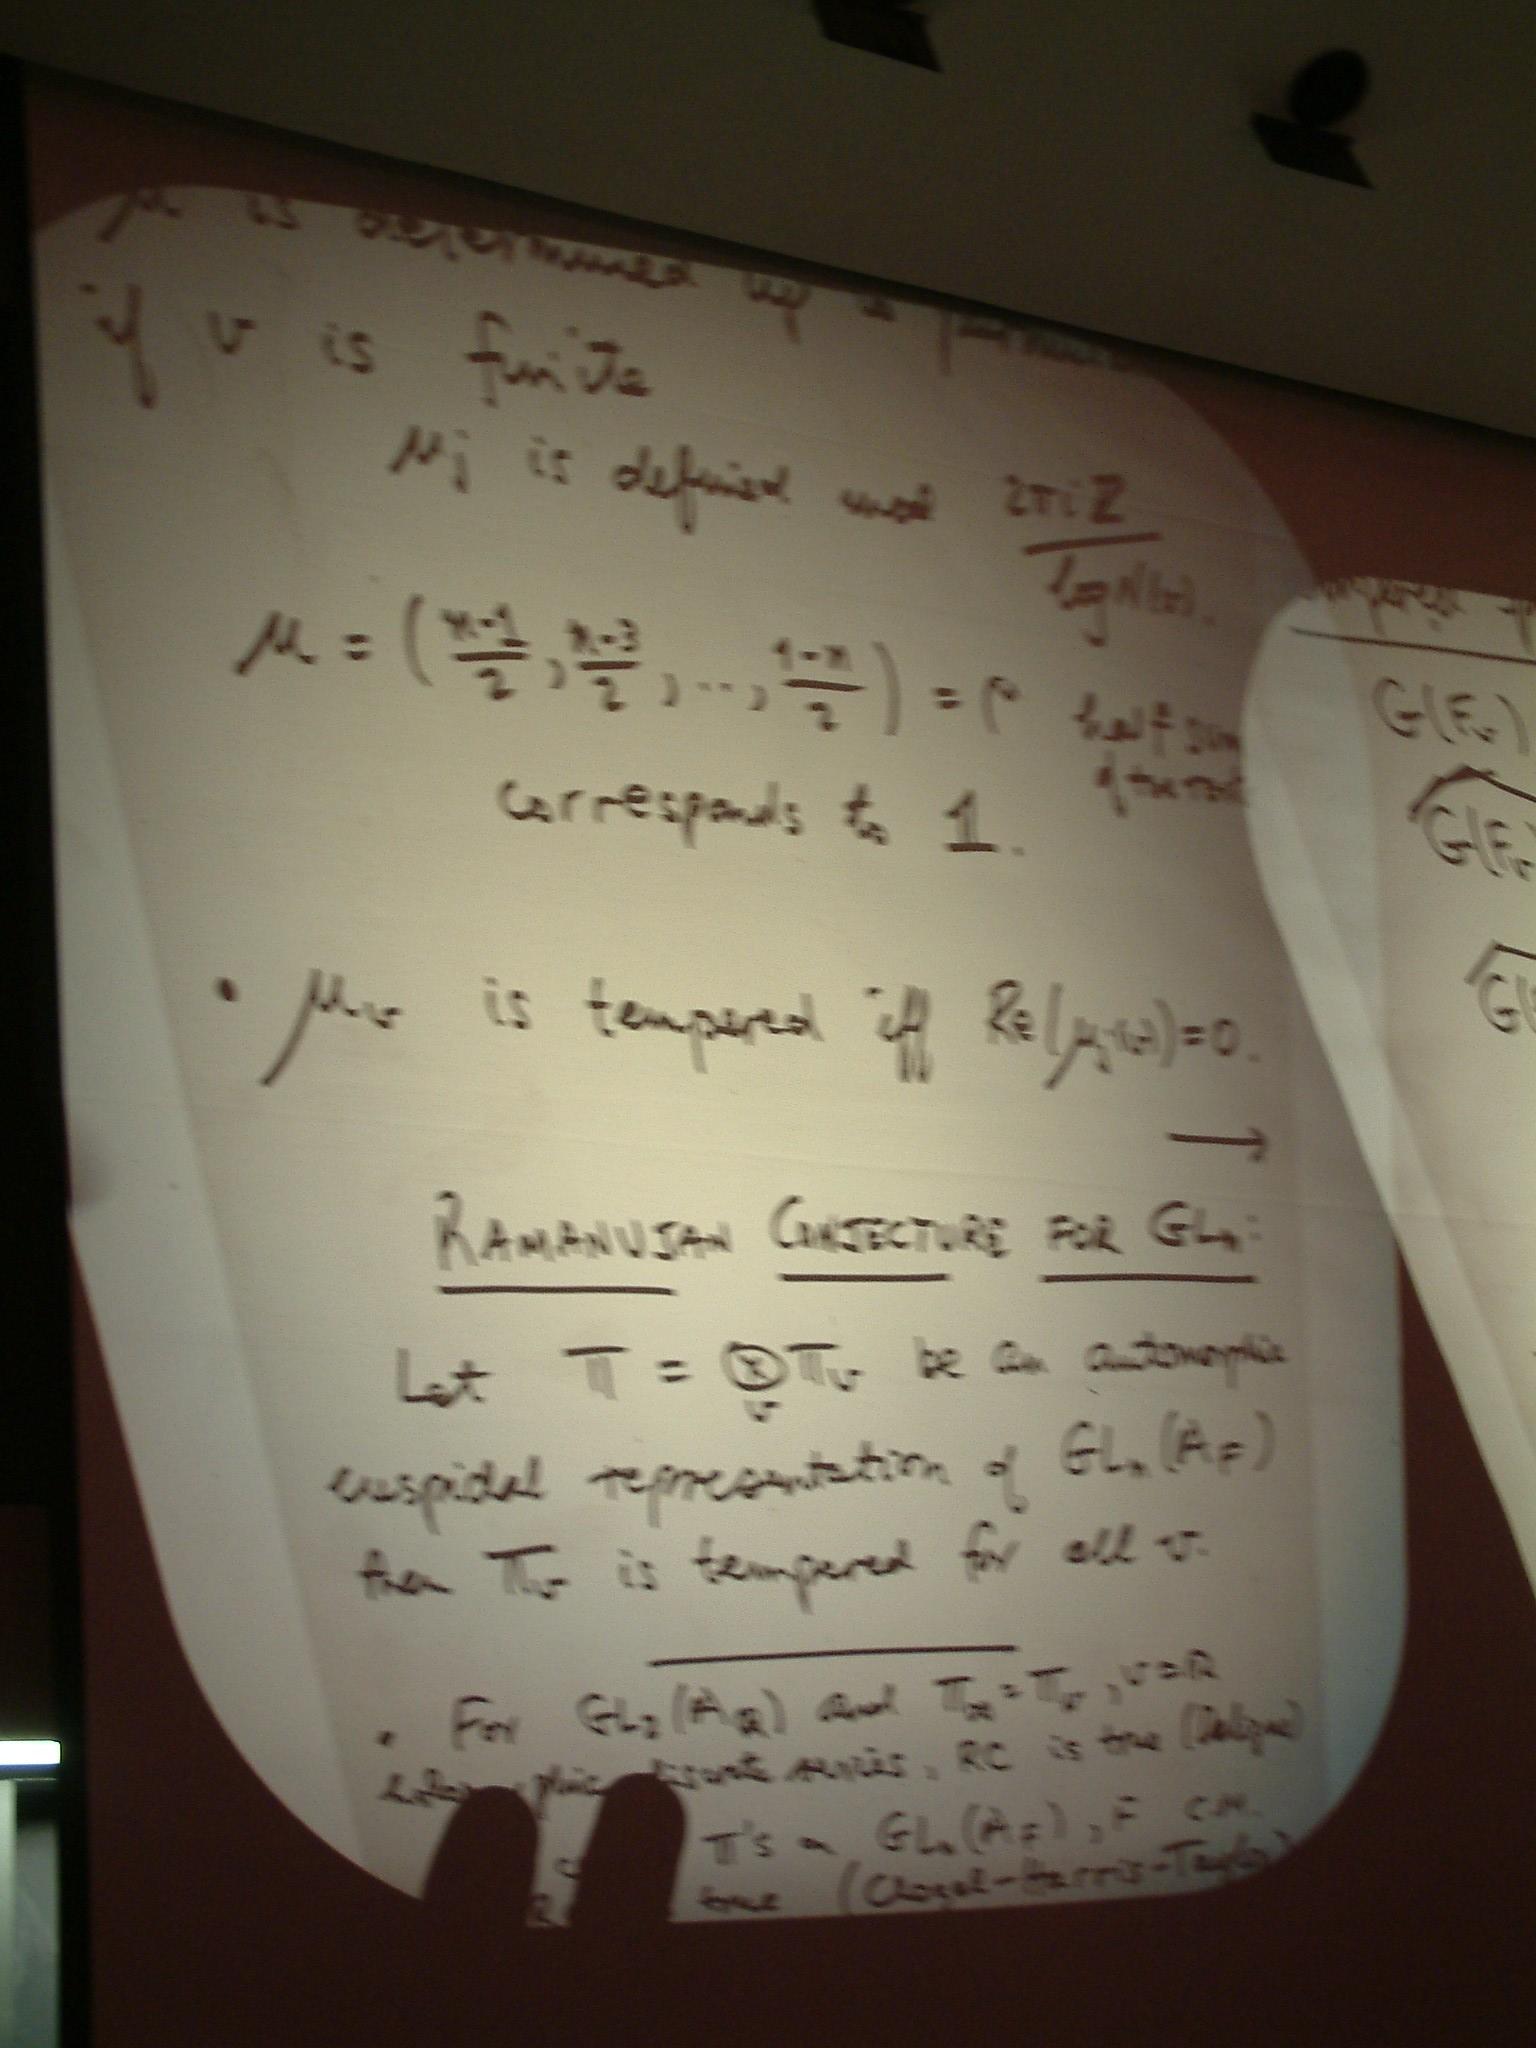 μ is determined by a
if v is finite
μj is defined mod 2πiZ
log N(v).
μ = (n-1/2, n-3/2, ..., 1-n/2) = ρ half sum
of the
corresponds to 1.
• μv is tempered iff Re(μj(v))=0.
→
RAMANUJAN CONJECTURE FOR GLn:
Let Π = ⊗v Πv be an automorphic
cuspidal representation of GLn(AF)
then Πv is tempered for all v.
• For GL2(AQ) and Π∞=Πv, v=R
discrete series, RC is true (Deligne)
Π's on GLn(AF), F C.M.
true (Clozel-Harris-Taylor)
G(Fv)
G(Fv
G(